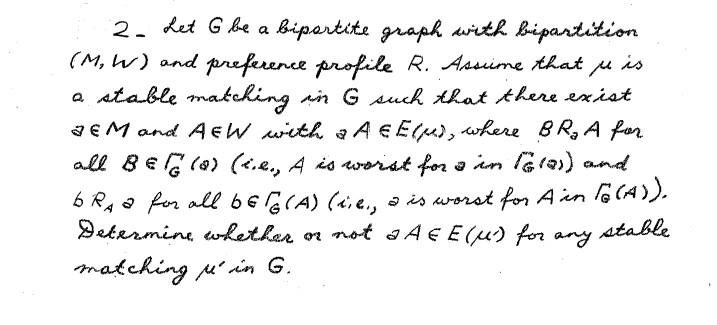 2- Let G be a bipartite graph with bipartition
(M, W) and preference profile R. Assume that μ is
a stable matching in G such that there exist
a ∈ M and A ∈ W with a A ∈ E(μ), where B Rₐ A for
all B ∈ Γ_G(a) (i.e., A is worst for a in Γ_G(a)) and
b R_A a for all b ∈ Γ_G(A) (i.e., a is worst for A in Γ_G(A)).
Determine whether or not a A ∈ E(μ') for any stable
matching μ' in G.